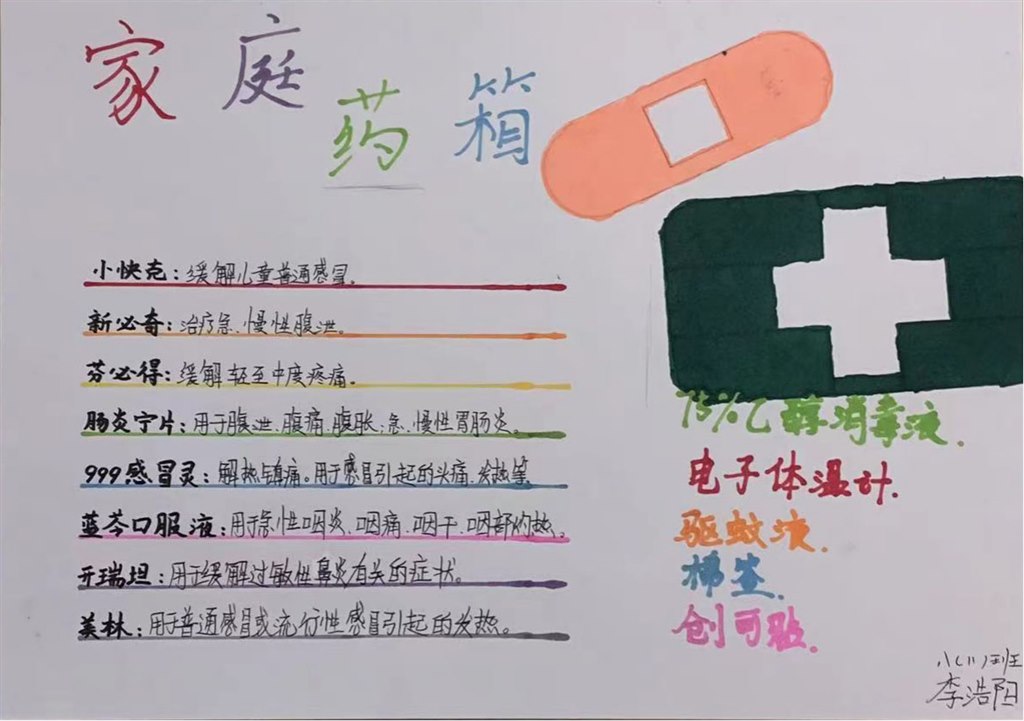 家庭药箱
小快克：缓解儿童普通感冒。
新必奇：治疗急、慢性腹泄。
芬必得：缓解轻至中度疼痛。
肠炎宁片：用于腹泄、腹痛、腹胀、急、慢性胃肠炎。
999感冒灵：解热镇痛。用于感冒引起的头痛、发热等
蓝芩口服液：用于急性咽炎、咽痛、咽干、咽部灼热。
开瑞坦：用于缓解过敏性鼻炎有关的症状。
美林：用于普通感冒或流行性感冒引起的发热。
75%乙醇消毒液.
电子体温计.
驱蚊液.
棉签.
创可贴.
八(11)班
李浩阳